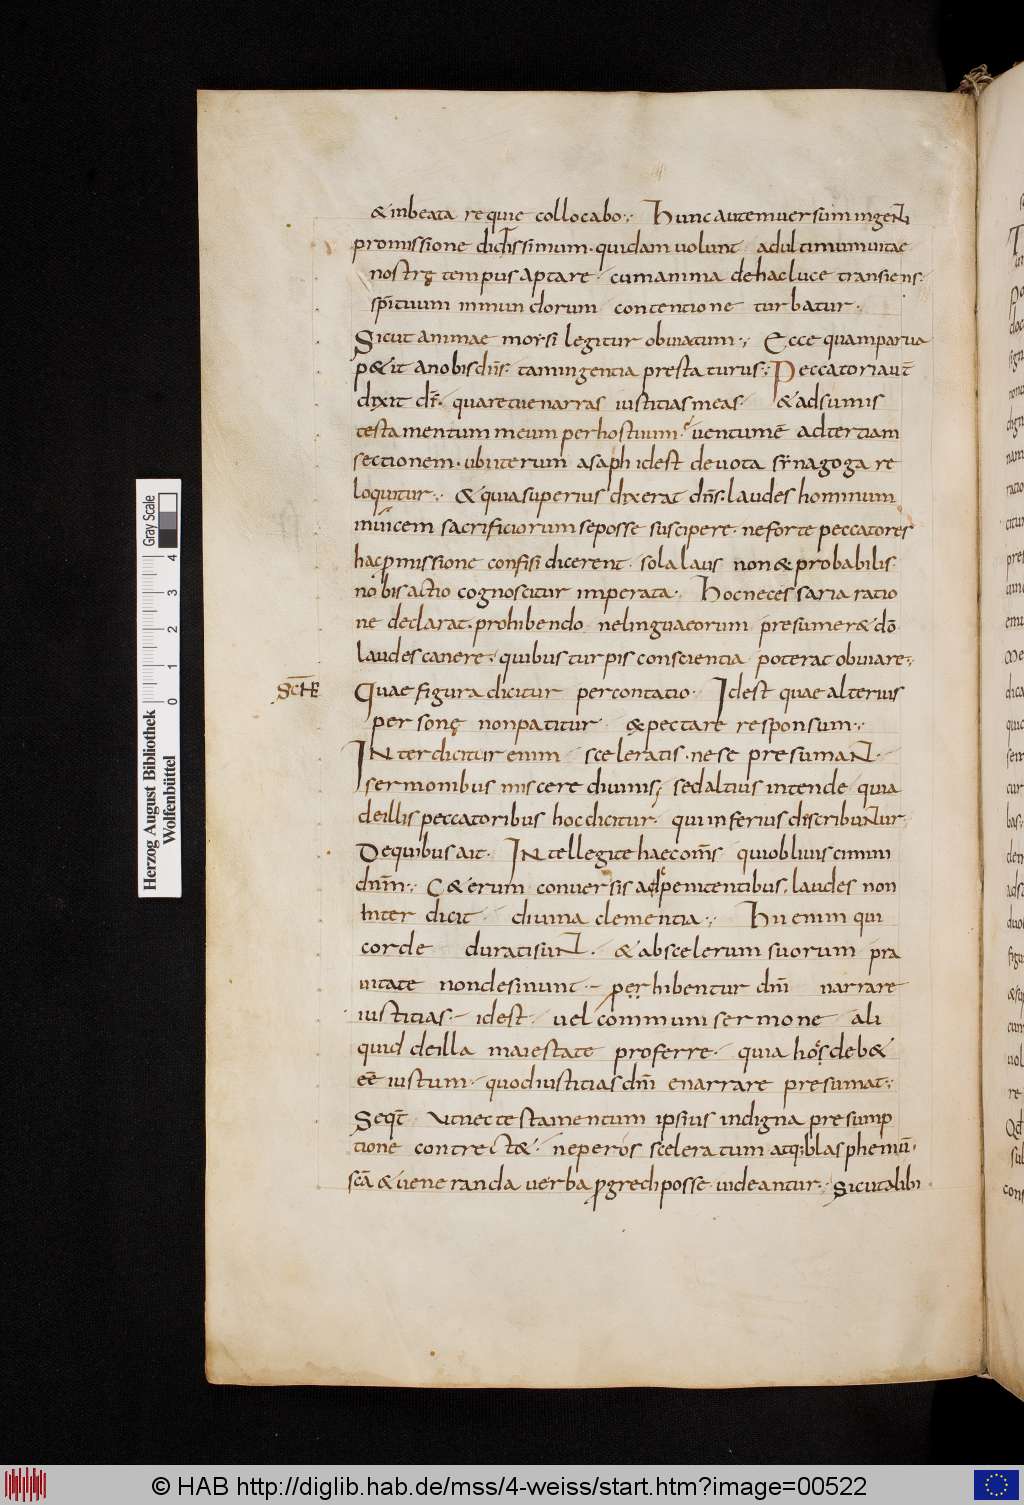 & inbeata requie collocabo · Hunc autem uersum ingenti
promissione ditissimum · quidam uolunt · ad ultimum uitae
nostrę tempus aptare · cum anima de hac luce transiens ·
sp̄ituum inmundorum contentione turbatur ·
Sicut animae morsi legitur obuiatum · Ecce quam parua
p&it a nobis dn̄s · tam ingentia prestaturus · Peccatori aut̄
dixit ds̄ · quare tu enarras iustitias meas · & adsumis
testamentum meum per hos tuum · uentum ē ad tertiam
sectionem · ubi iterum asaph idest deuota synagoga re
loquitur · & quia superius dixerat dn̄s · laudes hominum
inuicem sacrificiorum se posse suscipere · ne forte peccatores
hac p̱missione confisi dicerent · sola laus non & probabilis
nobis actio cognoscitur imperata · Hoc necessaria ratio
ne declarat · prohibendo ne linguae eorum presumer& dō
laudes canere · quibus turpis conscientia poterat obuiare ·
Quae figura dicitur percontatio · Idest quae alterius
personę non patitur expectare responsum ·
Interdicitur enim sceleratis · ne se presumant ·
sermonibus miscere diuinis · sed altius intende quia
de illis peccatoribus hoc dicitur · qui inferius discribuntur
De quibus ait · Intellegite haec om̄s qui obliuiscimini
dnm̄ · C&erum conuersis ac penitentibus · laudes non
Inter dicit · diuina clementia · Hii enim qui
corde durati sunt · & ab scelerum suorum pra
uitate non desinunt · perhibentur dn̄i narrare
iustitias · idest uel communi sermone ali
quid de illa maiestate proferre · quia hos deb&
eē iustum · quod iustitias dn̄i enarrare presumat ·
Seqt̄ · Ut nec testamentum ipsius indigna presump
tione contrect& · ne per os sceleratum atq: blasphemū ·
scā & ueneranda uerba p̱gredi posse uideantur · Sicut alibi
Herzog August Bibliothek
Wolfenbüttel
0 1 2 3 4
Gray Scale
© HAB http://diglib.hab.de/mss/4-weiss/start.htm?image=00522